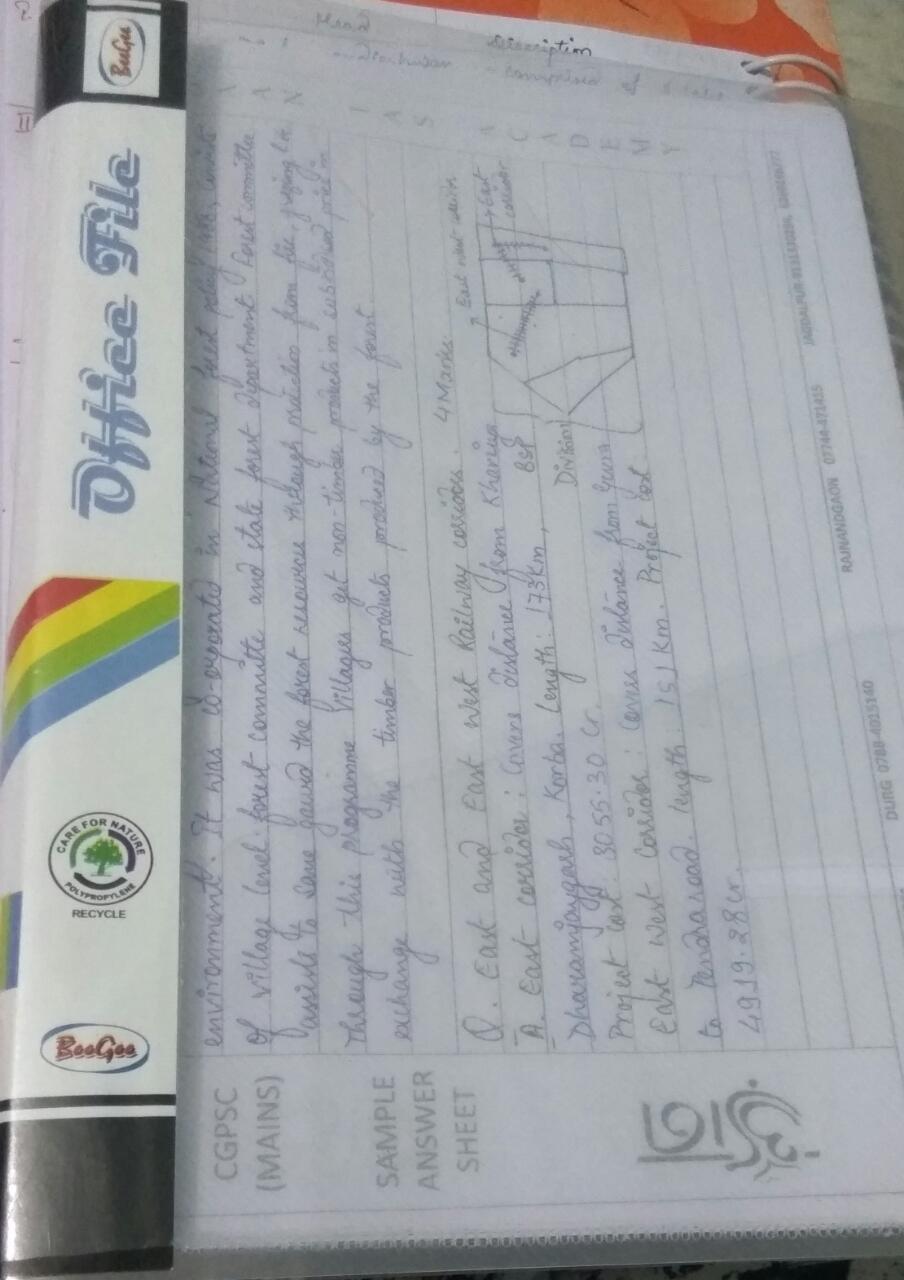 Head
Description
comprised of
BeeGee
Office File
CARE FOR NATURE
POLYPROPYLENE
RECYCLE
BeeGee
CGPSC
(MAINS)
SAMPLE
ANSWER
SHEET
environment. It was co-orporated in National forest policy
of village level forest committe and state forest department Forest committe
the forest resources through practices from fire, grazing
Through this programme villages get non-timber products in
exchange with the timber products produced by the forest.
Q. East and East West Railway corridors. 4 Marks.
A. East corridor: Covers distance from Kharsia
Dharamjaygarh, Korba. Length: 173 Km,
Project cost 3055.30 Cr.
East West Corridor: Covers distance from Gevra
to Pendraroad. length: 151 Km. Project cost
4919.28 Cr.
BSP
Division
East west
East
corridor
A
A
N
I
A
S
A
C
A
D
E
M
Y
DURG 0788-4015140
RAJNANDGAON 07744-471415